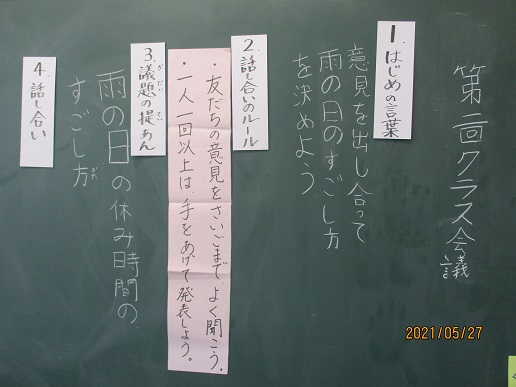 第二回クラス会議
1. はじめの言葉
意見を出し合って
雨の日のすごし方
を決めよう
2. 話し合いのルール
・友だちの意見をさいごまでよく聞こう。
・一人一回以上は、手をあげて発表しよう。
3. 議題の提あん
ぎだい てい
雨の日の休み時間の
すごし方
4. 話し合い
2021/05/27